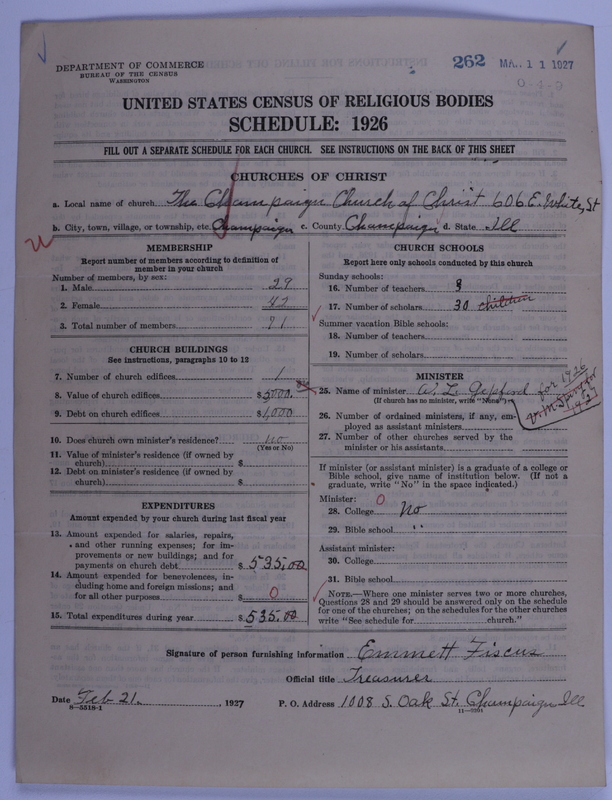 262 MAR 11 1927
DEPARTMENT OF COMMERCE
BUREAU OF THE CENSUS
WASHINGTON
UNITED STATES CENSUS OF RELIGIOUS BODIES
SCHEDULE: 1926
FILL OUT A SEPARATE SCHEDULE FOR EACH CHURCH. SEE INSTRUCTIONS ON THE BACK OF THIS SHEET
CHURCHES OF CHRIST
a. Local name of church The Champaign Church of Christ 606 E. White, St
b. City, town, village, or township, etc. Champaign c. County Champaign d. State Ill
MEMBERSHIP
Report number of members according to definition of
member in your church
Number of members, by sex:
1. Male 29
2. Female 42
3. Total number of members 71
CHURCH BUILDINGS
See instructions, paragraphs 10 to 12
7. Number of church edifices 1
8. Value of church edifices $5000.
9. Debt on church edifices $1,000
10. Does church own minister's residence? no
(Yes or No)
11. Value of minister's residence (if owned by
church) $
12. Debt on minister's residence (if owned by
church) $
EXPENDITURES
Amount expended by your church during last fiscal year
13. Amount expended for salaries, repairs,
and other running expenses; for im-
provements or new buildings; and for
payments on church debt $535.00
14. Amount expended for benevolences, in-
cluding home and foreign missions; and
for all other purposes $ 0
15. Total expenditures during year $535.00
CHURCH SCHOOLS
Report here only schools conducted by this church
Sunday schools:
16. Number of teachers 8
17. Number of scholars 30 children
Summer vacation Bible schools:
18. Number of teachers
19. Number of scholars
MINISTER
25. Name of minister W. L. Gepford for 1926
(If church has no minister, write "None")
1927
26. Number of ordained ministers, if any, em-
ployed as assistant ministers
27. Number of other churches served by the
minister or his assistants
If minister (or assistant minister) is a graduate of a college or
Bible school, give name of institution below. (If not a
graduate, write "No" in the space indicated.)
Minister: 0
28. College No
29. Bible school "
Assistant minister:
30. College
31. Bible school
NOTE.—Where one minister serves two or more churches,
Questions 28 and 29 should be answered only on the schedule
for one of the churches; on the schedules for the other churches
write "See schedule for church."
Signature of person furnishing information Emmett Fiscus
Official title Treasurer
Date Feb 21. , 1927 P. O. Address 1008 S. Oak St. Champaign Ill
8—5518-1